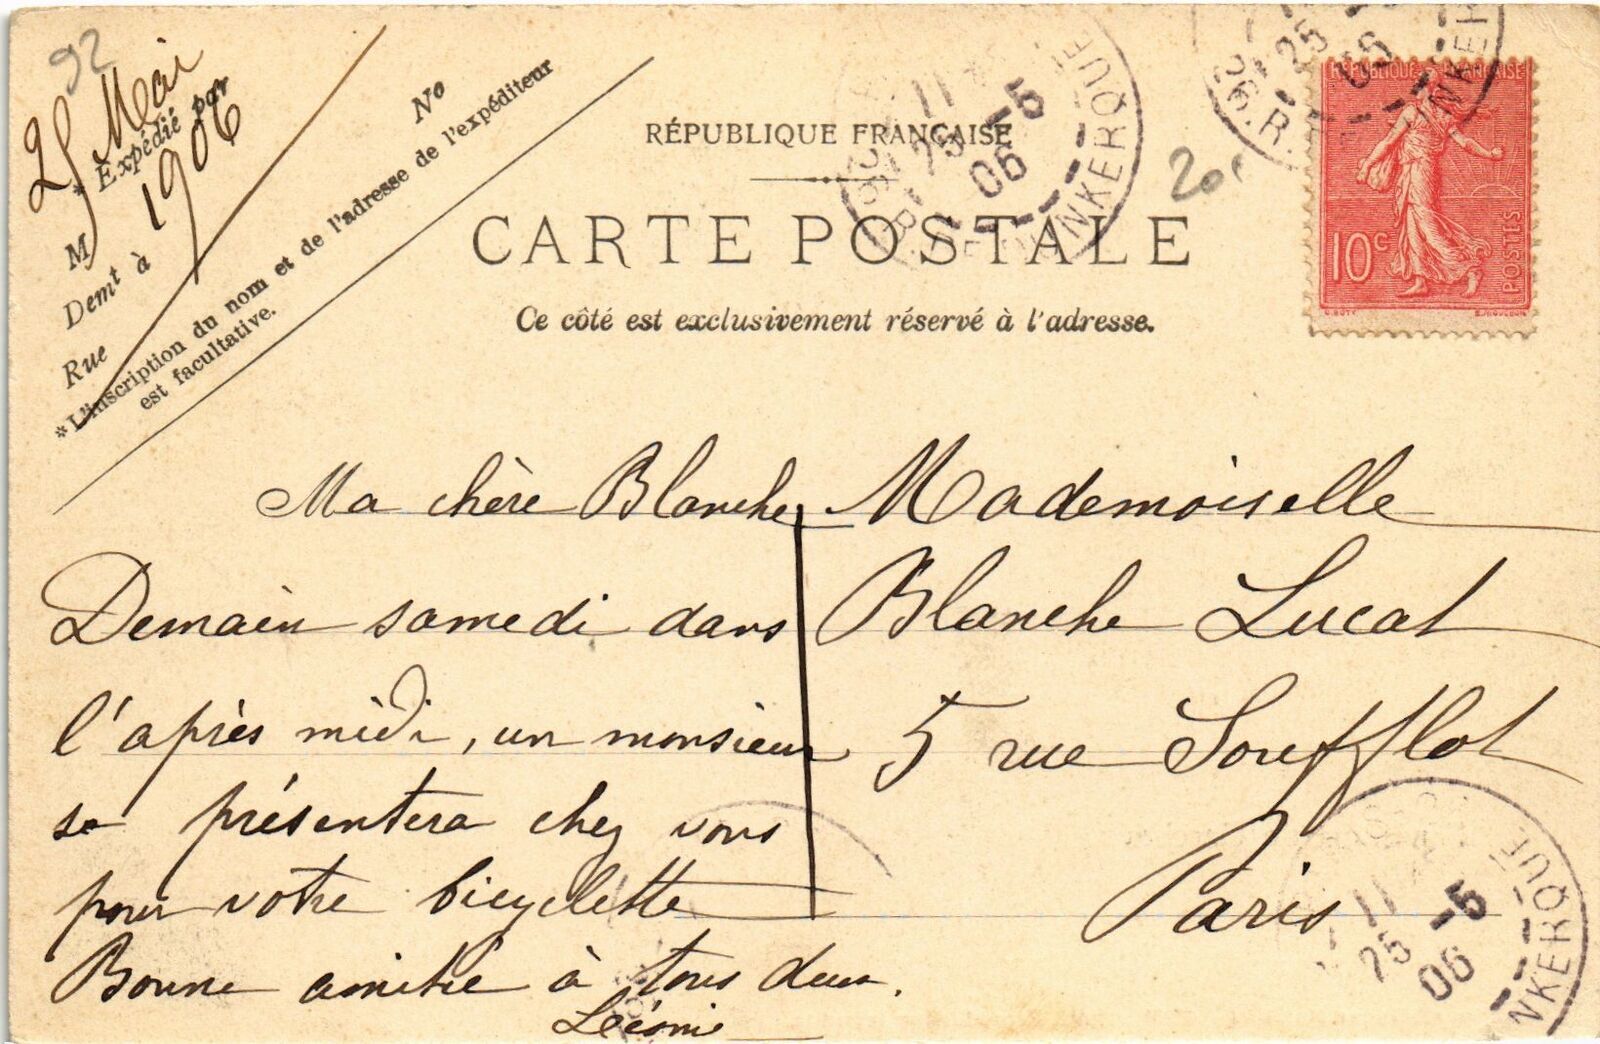 92
25 Mai
1906
* Expédié par
M
Demt à
Rue
No
*L'inscription du nom et de l'adresse de l'expéditeur
est facultative.
RÉPUBLIQUE FRANÇAISE
CARTE POSTALE
Ce côté est exclusivement réservé à l'adresse.
11
25 -5
06
NKERQUE
20
25
06
26. R.
NKER
RÉPUBLIQUE FRANÇAISE
10c
POSTES
O. ROTY
E. MOUCHON
Ma chère Blanche
Demain samedi dans
l'après midi, un monsieur
se présentera chez vous
pour votre bicyclette
Bonne amitié à tous deux.
Léonie
Mademoiselle
Blanche Lucat
5 rue Soufflot
Paris
11
25 -5
06
NKERQUE